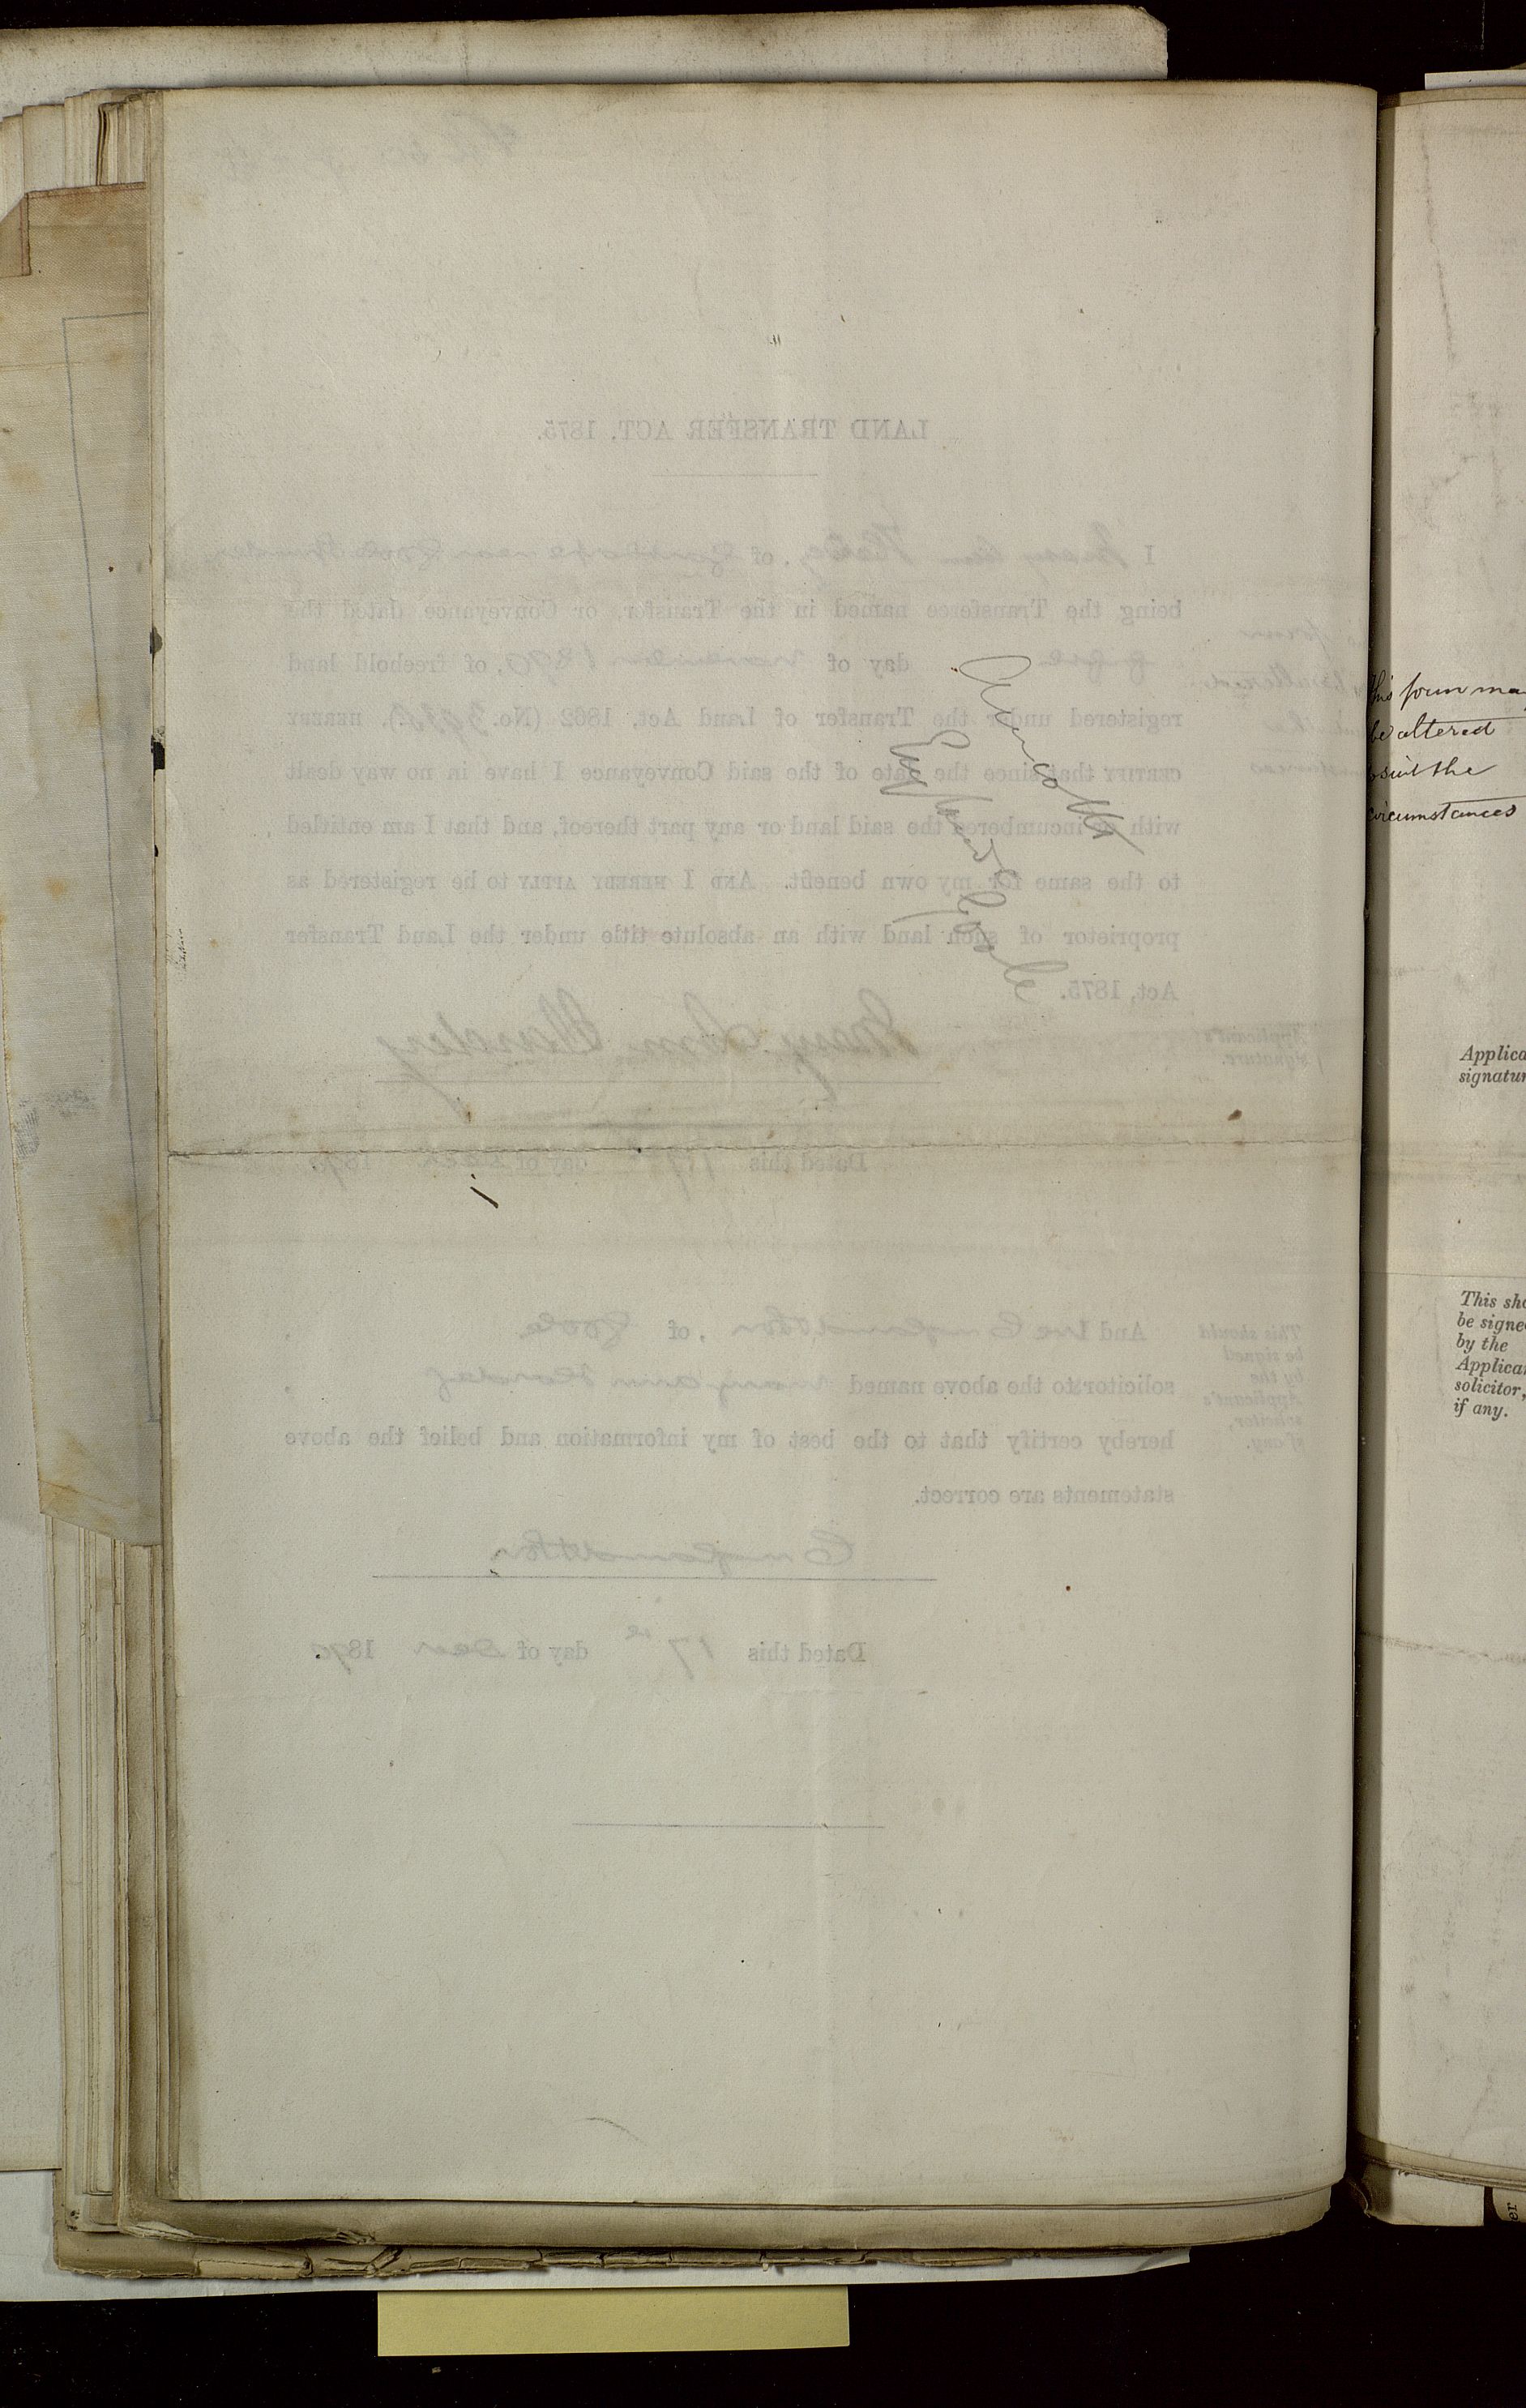 LAND TRANSFER ACT, 1875.
I Mary Ann of near Goole
being the Transferee named in the Transfer, or Conveyance dated the
day of November 1890, of freehold land
registered under the Transfer of Land Act, 1862 (No. ), HEREBY
CERTIFY that since the date of the said Conveyance I have in no way dealt
with or incumbered the said land or any part thereof, and that I am entitled
to the same for my own benefit. AND I HEREBY APPLY to be registered as
proprietor of such land with an absolute title under the Land Transfer
Act, 1875.
Applicant's
signature.
Mary Ann
Dated this day of 1890.
This should
be signed
by the
Applicant's
solicitor,
if any.
And We England & Son, of Goole
solicitors to the above named Mary Ann
hereby certify that to the best of my information and belief the above
statements are correct.
England & Son
Dated this 17th day of Decr 1890.
England
Goole
This form may
be altered
to suit the
circumstances
Applica
signatur
This sho
be signe
by the
Applica
solicitor,
if any.